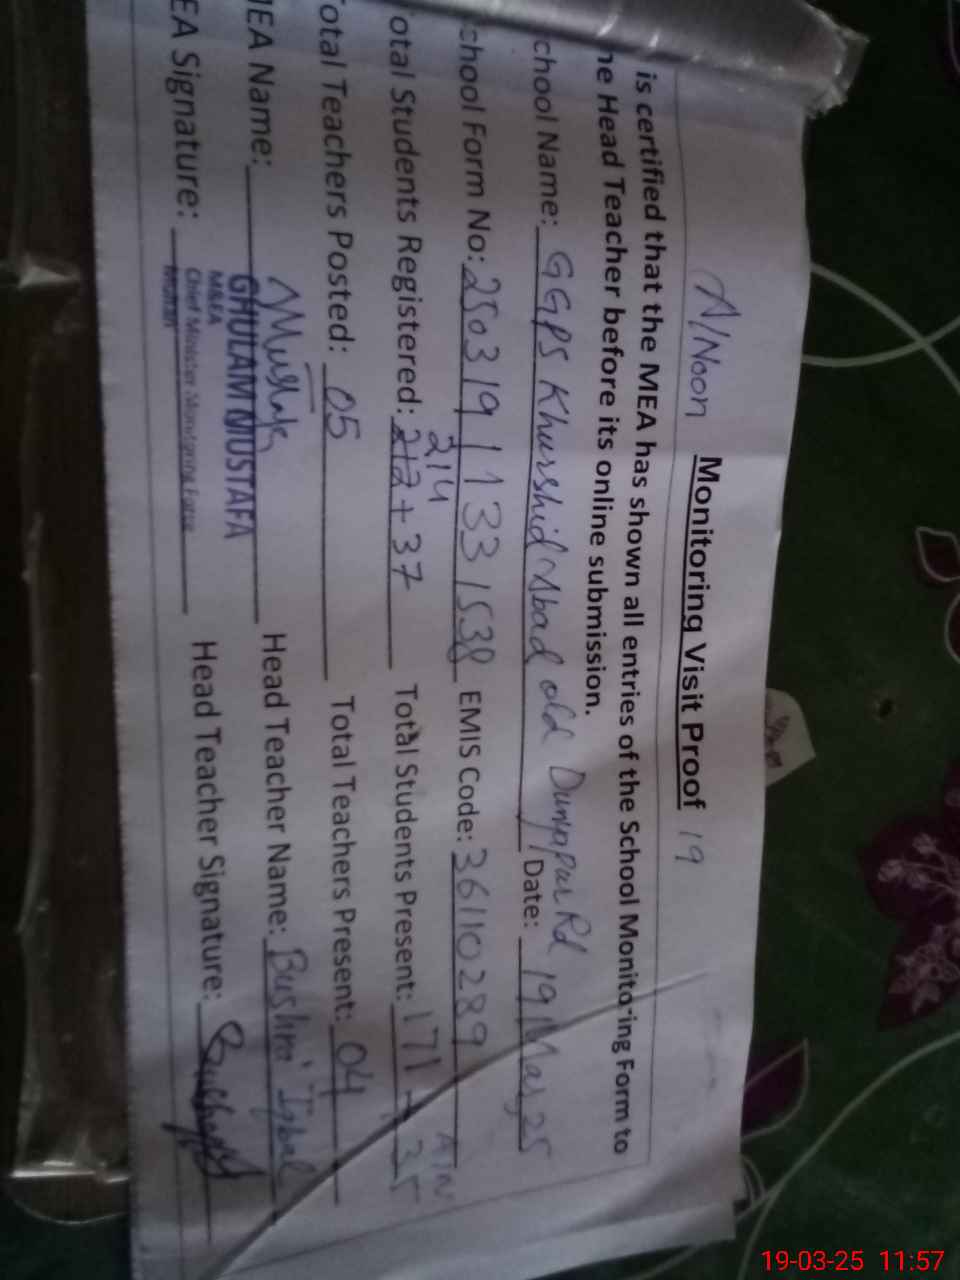 A/Noon Monitoring Visit Proof 19
is certified that the MEA has shown all entries of the School Monitoring Form to
he Head Teacher before its online submission.
chool Name: GGPS Khurshid Abad old Dunyapur Rd Date: 19 Mar, 25
chool Form No: 2503191331538 EMIS Code: 36110289 A/N
214
otal Students Registered: 212+37 Total Students Present: 171 + 35
otal Teachers Posted: 05 Total Teachers Present: 04
EA Name: GHULAM MUSTAFA Head Teacher Name: Bushra Iqbal
M&EA
EA Signature: Chief Minister Monitoring Force Head Teacher Signature:
Multan
19-03-25 11:57